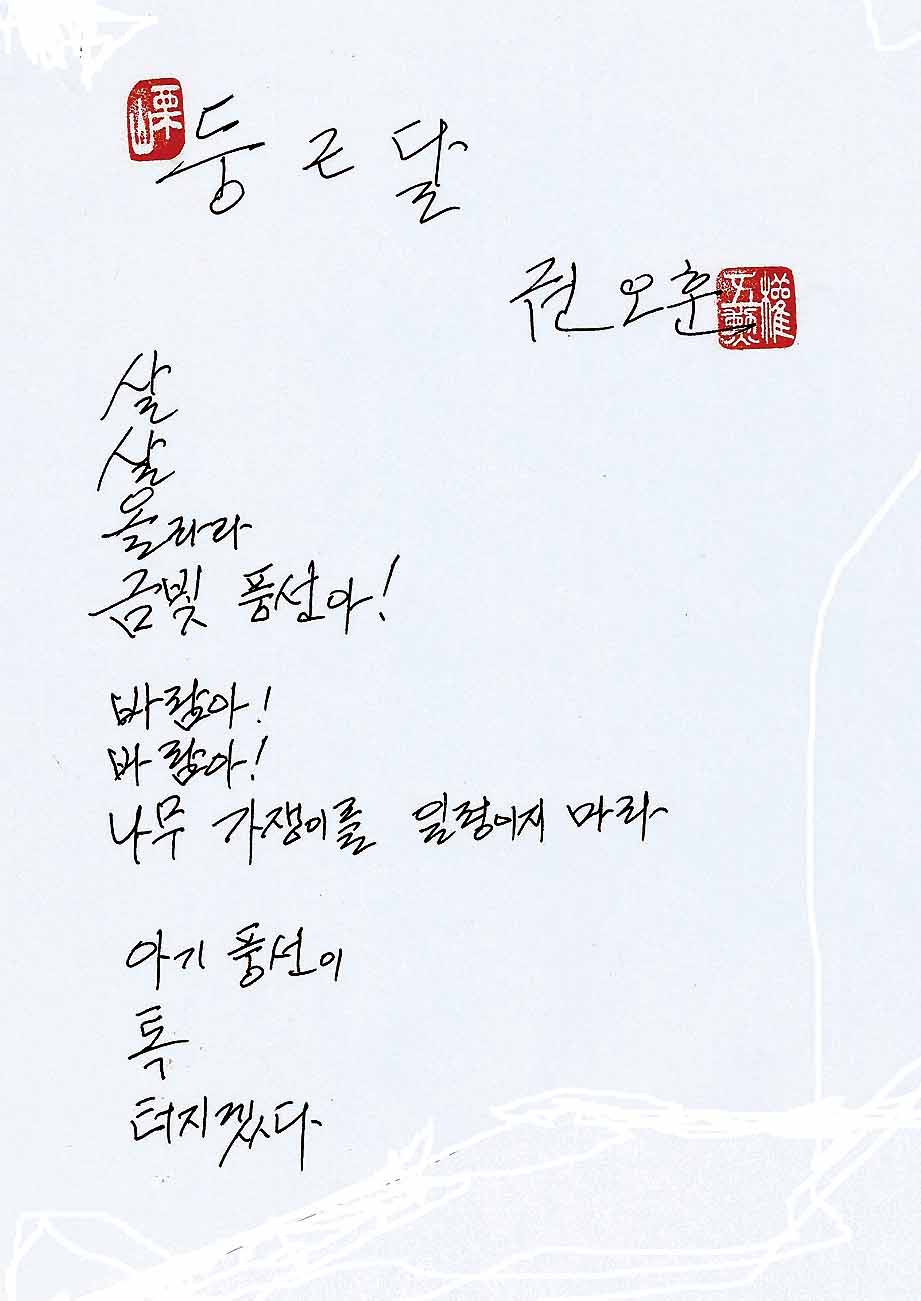 둥근달
권오훈
살
살
올라라
금빛 풍선아!
바람아!
바람아!
나무 가쟁이를 일렁이지 마라
아기 풍선이
톡
터지겠다